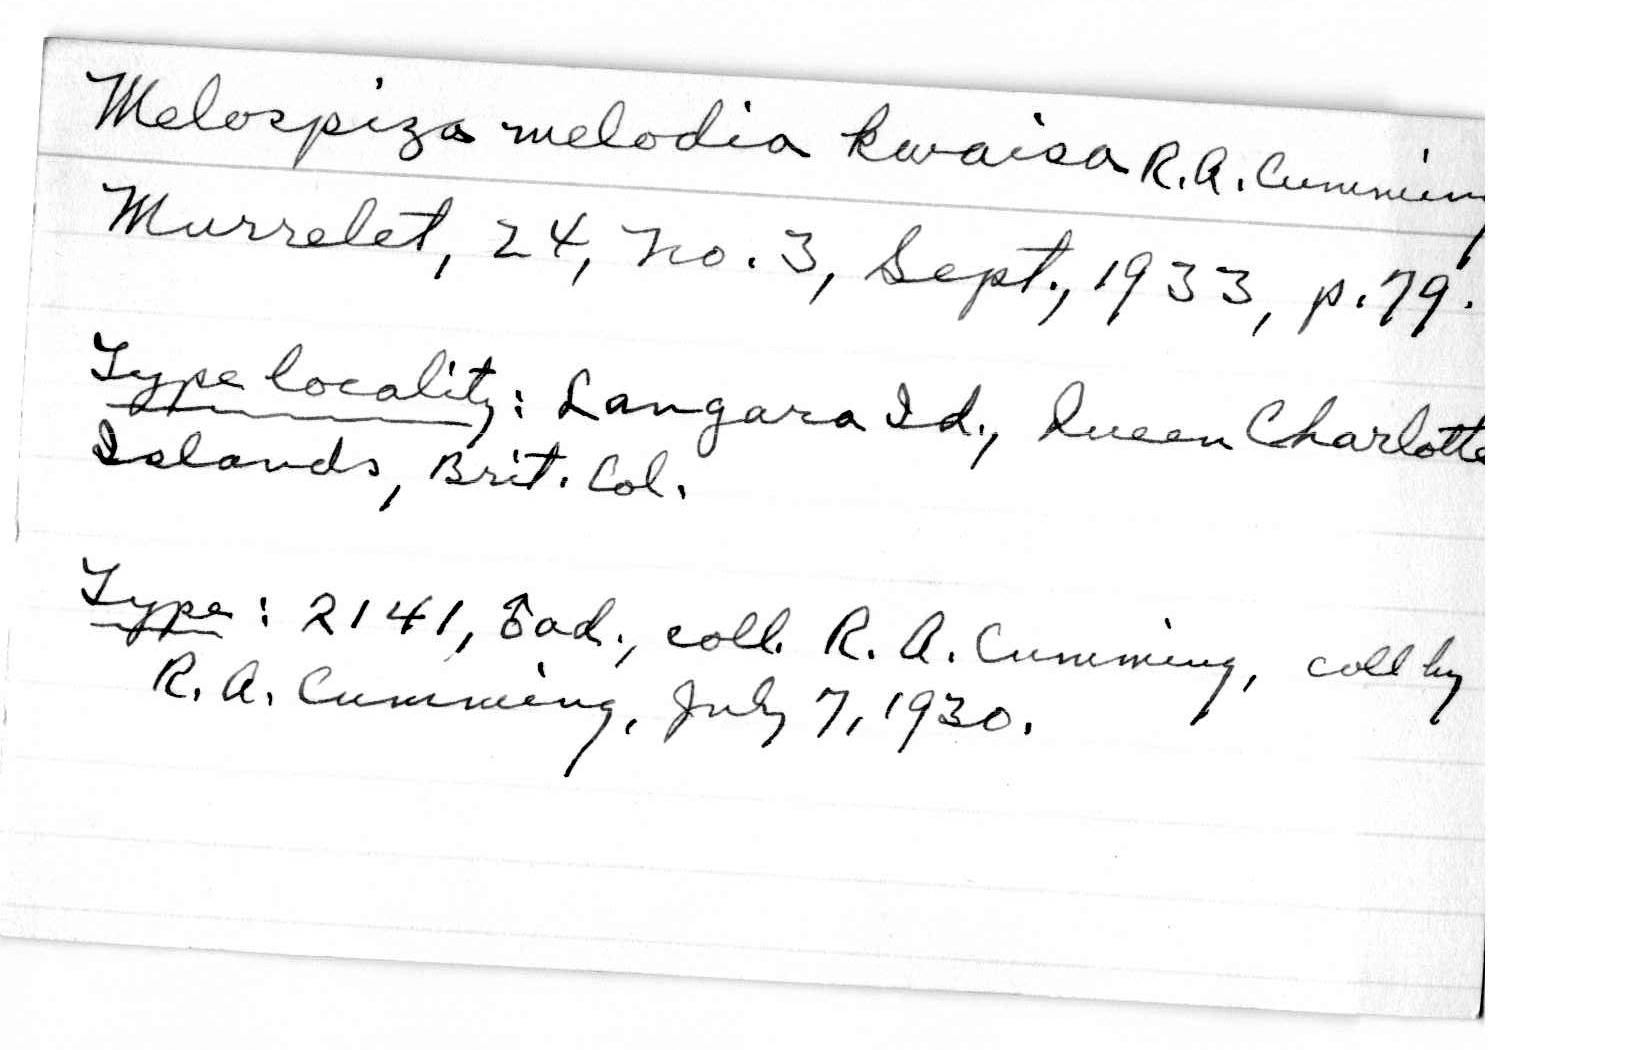 Melospiza melodia kwaisa R.A. Cumming
Murrelet, 24, No. 3, Sept., 1933, p. 79.
Type locality: Langara Id., Queen Charlotte
Islands, Brit. Col.
Type: 2141, ♂ ad., coll. R. A. Cumming, coll by
R. A. Cumming, July 7, 1930.